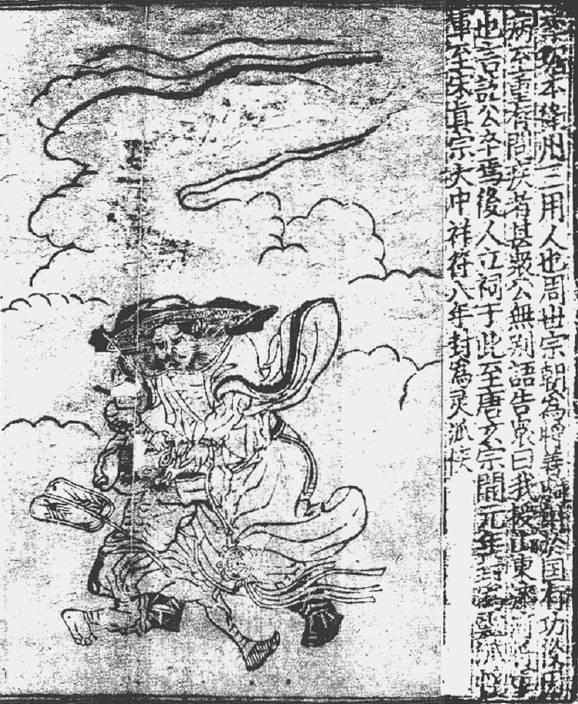 本絳州三用人也周世宗朝為將善騎射於国有功後因
病至重有問疾者甚衆公無別語告衆曰我授山東
也言訖公卒焉後人立祠于此至唐玄宗開元年封為
軍至宋真宗大中祥符八年封為灵派侯